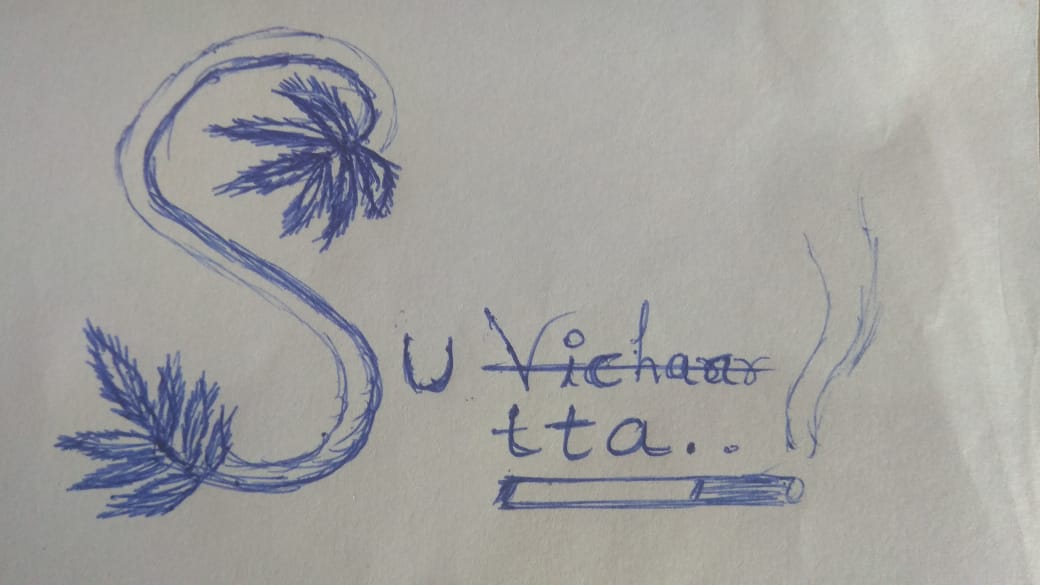 Su Vichaar
tta..